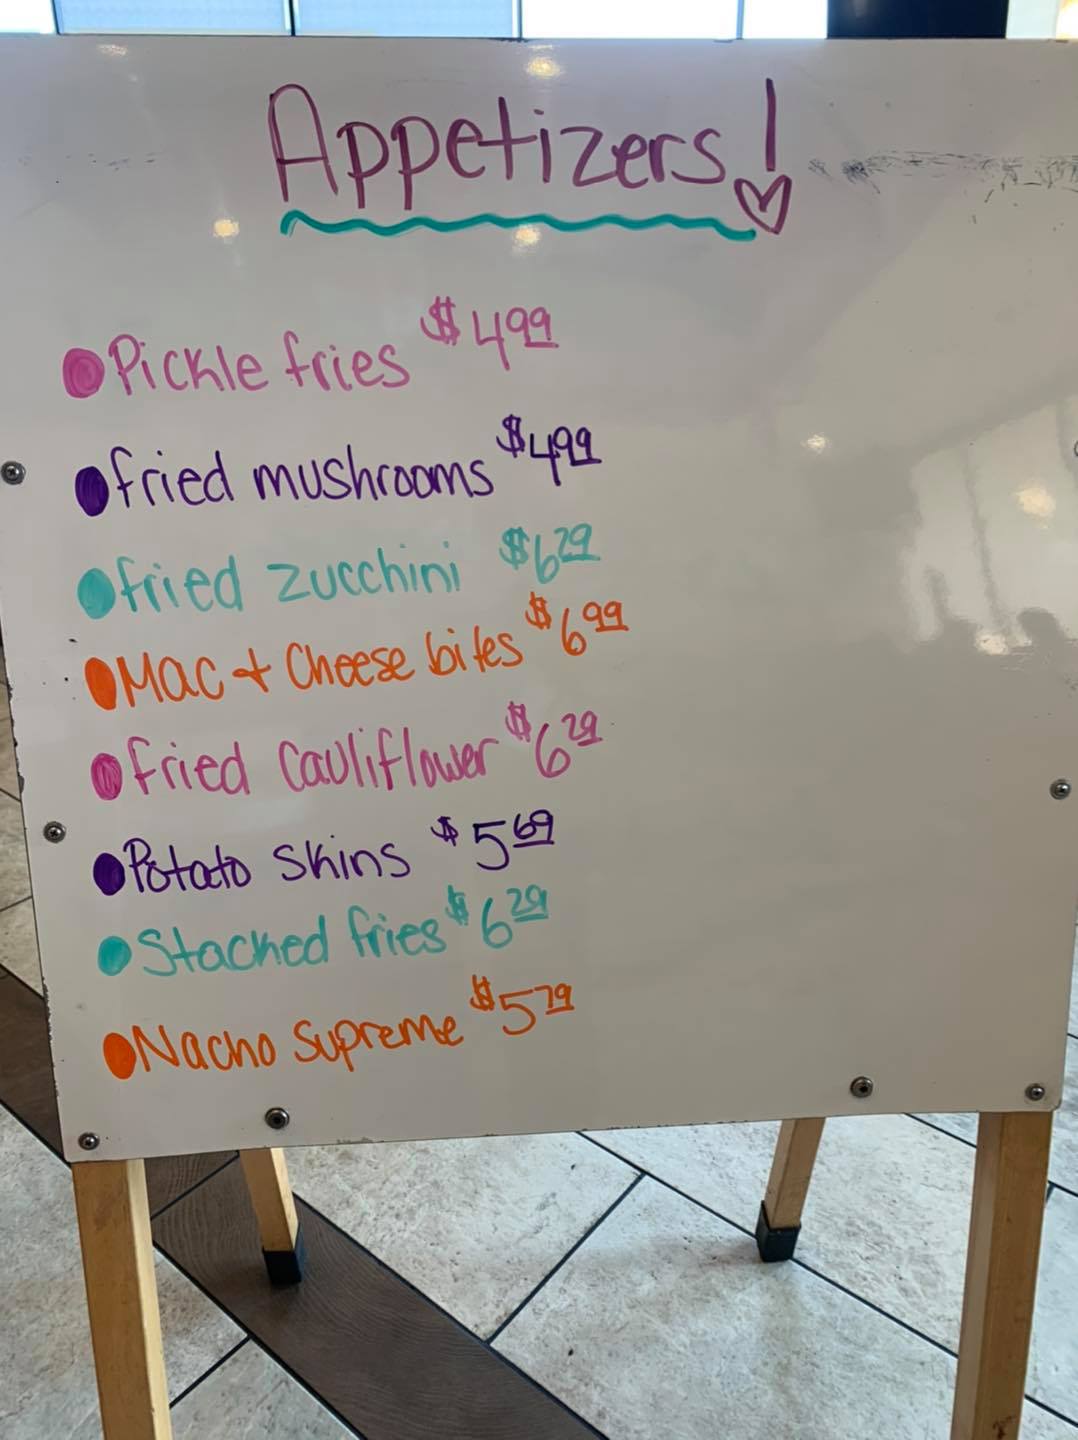 Appetizers!
Pickle fries $4.99
fried mushrooms $4.99
fried zucchini $6.29
Mac + Cheese bites $6.99
fried Cauliflower $6.29
Potato skins $5.69
Stacked fries $6.29
Nacho Supreme $5.79